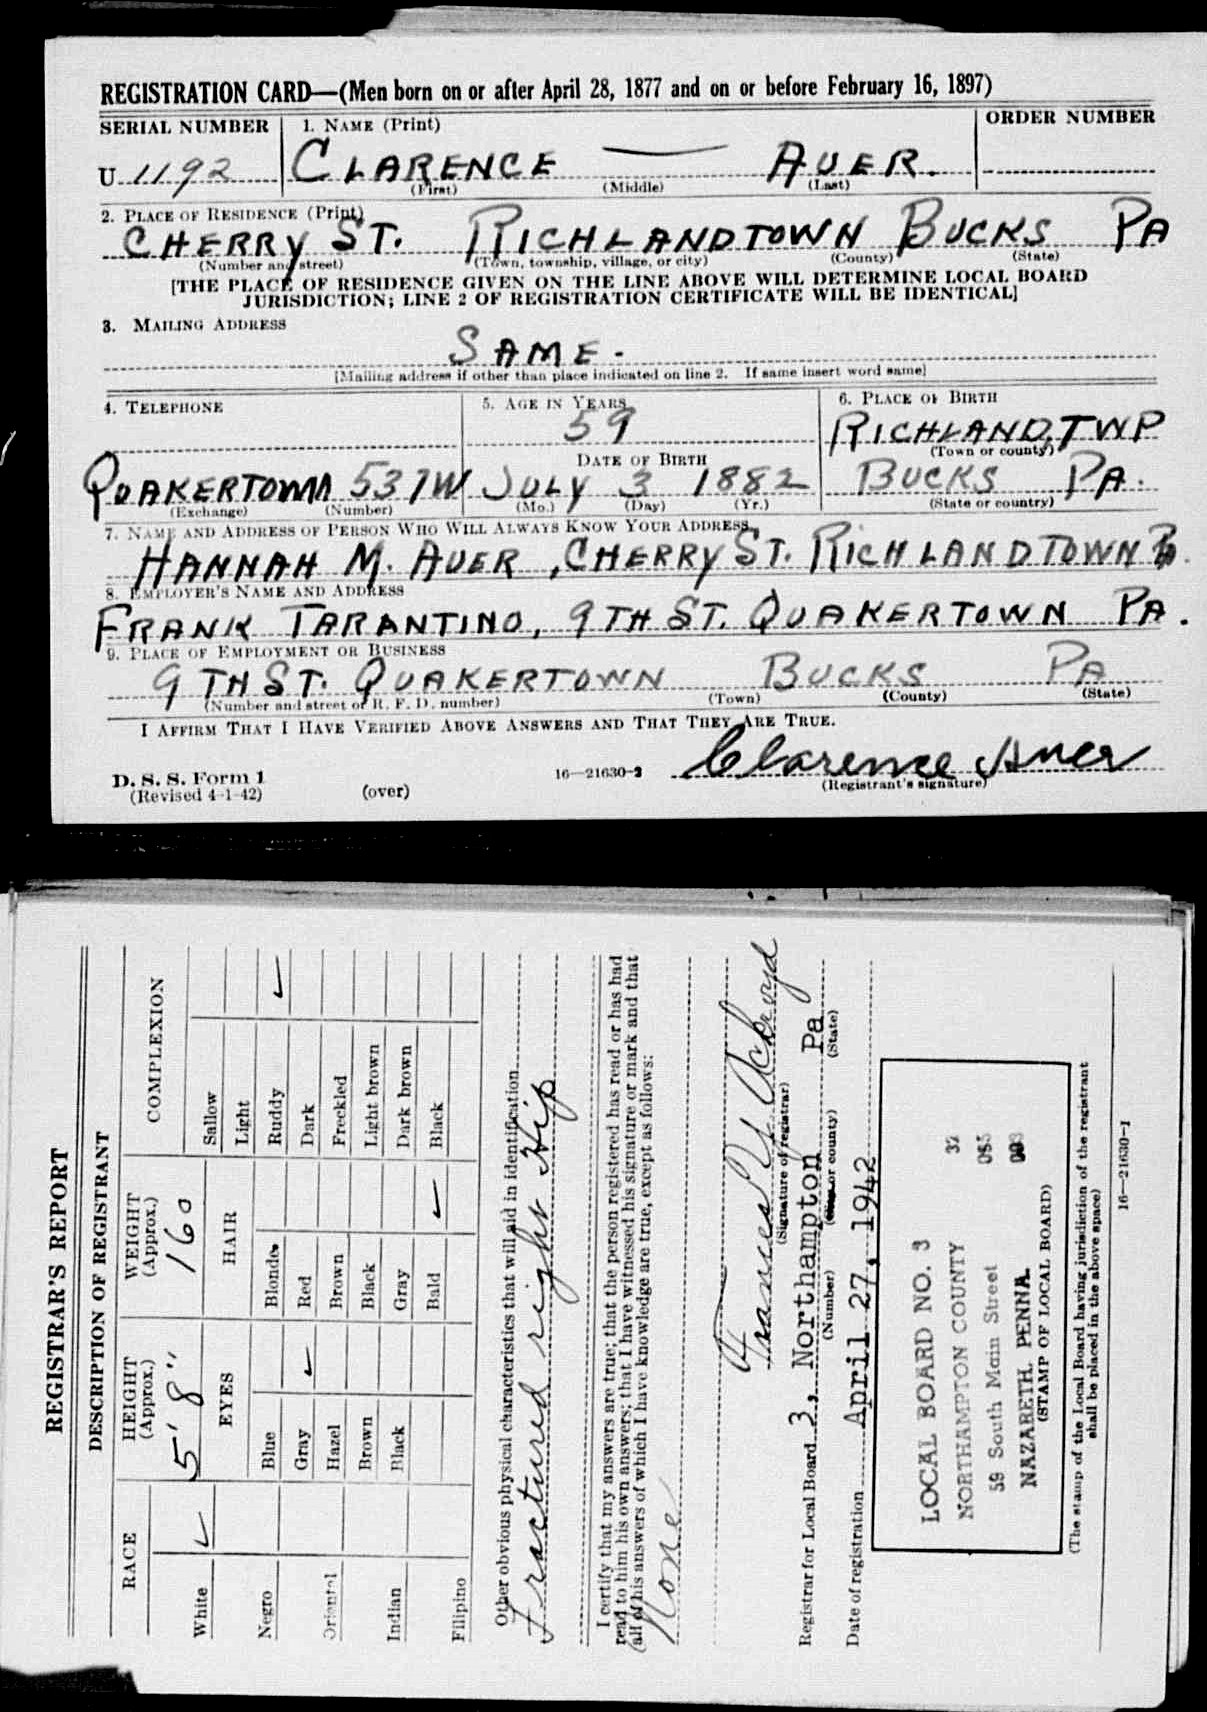 REGISTRATION CARD—(Men born on or after April 28, 1877 and on or before February 16, 1897)
SERIAL NUMBER 1. NAME (Print) ORDER NUMBER
U 1192 CLARENCE — AUER.
(First) (Middle) (Last)
2. PLACE OF RESIDENCE (Print)
CHERRY ST. RICHLANDTOWN BUCKS PA
(Number and street) (Town, township, village, or city) (County) (State)
[THE PLACE OF RESIDENCE GIVEN ON THE LINE ABOVE WILL DETERMINE LOCAL BOARD
JURISDICTION; LINE 2 OF REGISTRATION CERTIFICATE WILL BE IDENTICAL]
3. MAILING ADDRESS
SAME.
[Mailing address if other than place indicated on line 2. If same insert word same]
4. TELEPHONE 5. AGE IN YEARS 6. PLACE OF BIRTH
59 RICHLAND, TWP
DATE OF BIRTH (Town or county)
QUAKERTOWN 537W JULY 3 1882 BUCKS PA.
(Exchange) (Number) (Mo.) (Day) (Yr.) (State or country)
7. NAME AND ADDRESS OF PERSON WHO WILL ALWAYS KNOW YOUR ADDRESS
HANNAH M. AUER, CHERRY ST. RICHLANDTOWN PA.
8. EMPLOYER'S NAME AND ADDRESS
FRANK TARANTINO, 9TH ST. QUAKERTOWN PA.
9. PLACE OF EMPLOYMENT OR BUSINESS
9TH ST. QUAKERTOWN BUCKS PA
(Number and street or R. F. D. number) (Town) (County) (State)
I AFFIRM THAT I HAVE VERIFIED ABOVE ANSWERS AND THAT THEY ARE TRUE.
Clarence Auer
D. S. S. Form 1 16—21630-2 (Registrant's signature)
(Revised 4-1-42) (over)
REGISTRAR'S REPORT
DESCRIPTION OF REGISTRANT
RACE HEIGHT (Approx.) WEIGHT (Approx.) COMPLEXION
5'8" 160
White ✓ EYES HAIR Sallow
Light
Negro Blue Blonde Ruddy ✓
Gray ✓ Red Dark
Oriental Hazel Brown Freckled
Brown Black Light brown
Indian Black Gray Dark brown
Bald ✓ Black
Filipino
Other obvious physical characteristics that will aid in identification
Fractured right Hip
I certify that my answers are true; that the person registered has read or has had
read to him his own answers; that I have witnessed his signature or mark and that
all of his answers of which I have knowledge are true, except as follows:
None
Frances Y. Ackroyd
(Signature of registrar)
Registrar for Local Board 3, Northampton Pa
(Number) (City or county) (State)
Date of registration April 27, 1942
LOCAL BOARD NO. 3
NORTHAMPTON COUNTY 32
59 South Main Street
NAZARETH, PENNA.
(STAMP OF LOCAL BOARD)
(The stamp of the Local Board having jurisdiction of the registrant
shall be placed in the above space)
16—21630-1